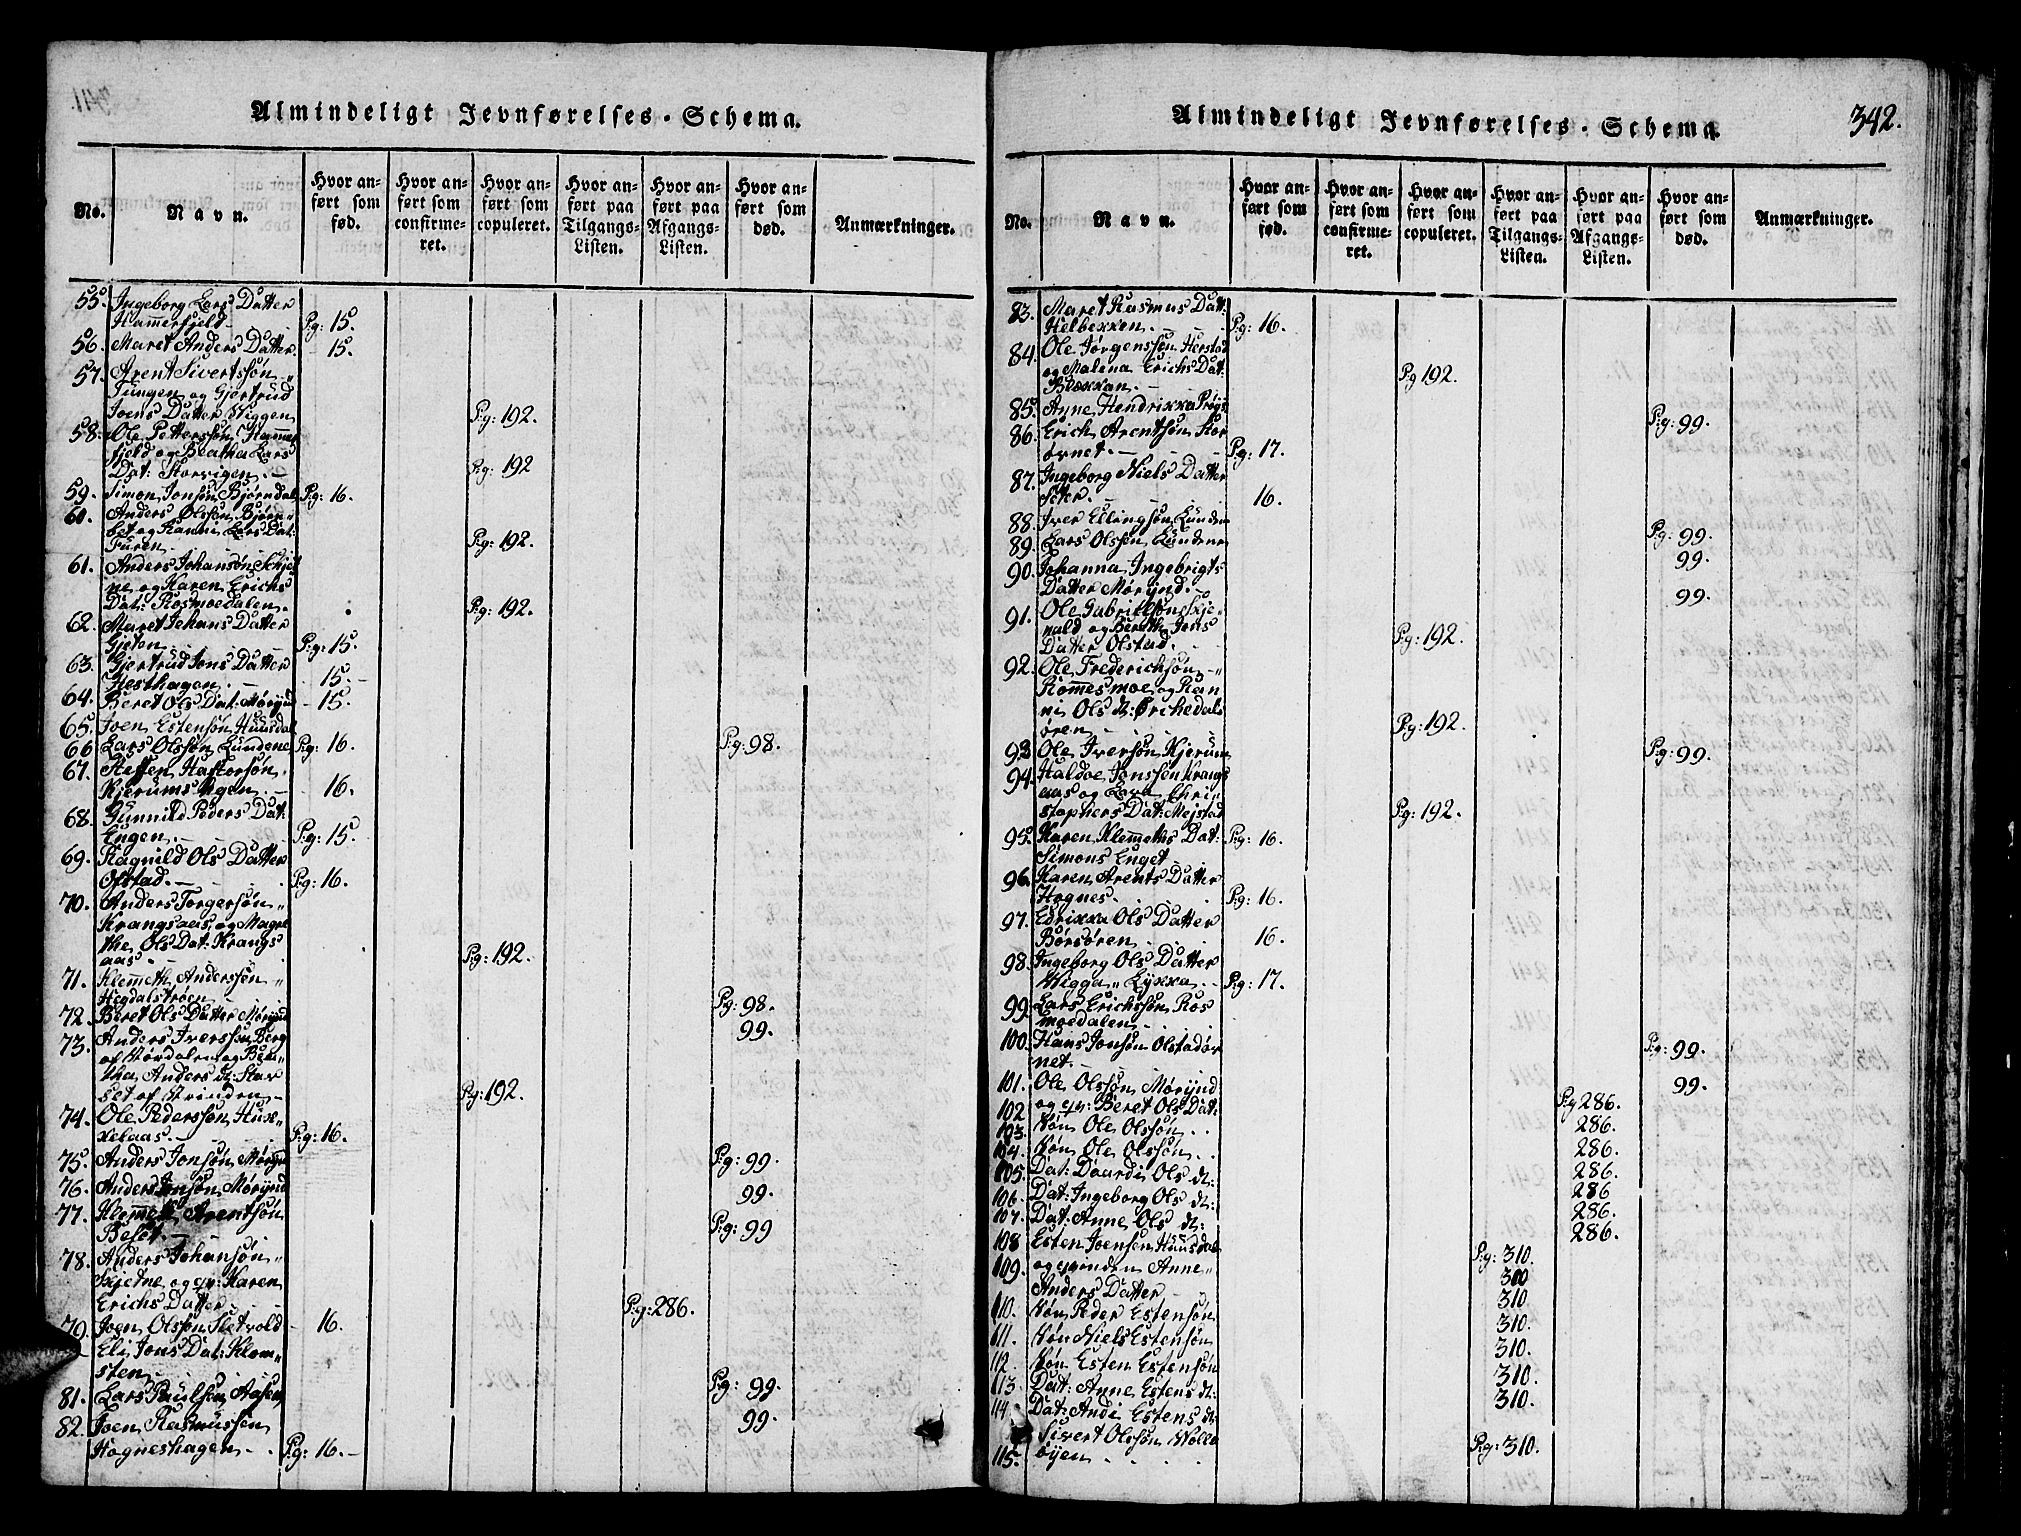 Almindeligt Jevnførelses-Schema.
No.
Navn.
Hvor anført som fød.
Hvor anført som confirmeret.
Hvor anført som copuleret.
Hvor anført paa Tilgangs-Listen.
Hvor anført paa Afgangs-Listen.
Hvor anført som død.
Anmærkninger.
55. Ingeborg Lars Datter
Hammerfjeld Pg: 15.
56. Maret Anders Datter. - 15.
57. Arent Sivertssøn
Tungen og Gjertrud
Joens Datter Wiggen Pg: 192.
58. Ole Pettersøn Hammer
fjeld og Beatha Lars
Dat: Storvigen Pg: 192
59. Simon Jonsøn Bjørndal Pg: 16.
60. Anders Olssøn Bjørn
set og Ranni Lars Dat:
Furen. Pg: 192.
61. Anders Johansøn Skjet
ne og Karen Erichs
Dat: Rosmoedalen. Pg: 192.
62. Maret Johans Datter
Gjeton Pg: 15.
63. Gjertrud Jons Datter
Hesthagen. - 15.
64. Beret Ols Dat: Mørynd - 15.
65. Joen Estensøn Huusdal
66. Lars Olssøn Lundene Pg: 16. Pg: 98.
67. Steffen Haftorsøn
Kjerums Engen. - 16.
68. Gunnild Peders Dat:
Engen. Pg: 15.
69. Ragnild Ols Datter
Ofstad. Pg: 16.
70. Anders Torgersøn
Krangsaas, og Magre
the Ols Dat: Krangs
aas Pg: 192.
71. Klemmeth Anderssøn
Hegdalstrøen Pg: 98.
72. Beret Ols Datter Mørynd 99.
73. Anders Iverssøn Berg
af Nordalen og Bea
tha Anders dt: Stor
set af Strinden Pg: 192.
74. Ole Pederssøn Hux
xelaas. Pg: 16.
75. Anders Jonsøn Mørynd Pg: 99.
76. Anders Jonsøn Mørynd 99.
77. Klemmet Arentsøn
Beset. Pg: 99
78. Anders Johansøn
Skjetne og qv: Karen
Erichs Datter Pg: 286.
79. Joen Olssøn Sletvold - 16.
Eli Jons Dat: Klom
sten. Pg: 99.
81. Lars Paulsen Aasen 99.
82. Joen Rasmussen
Hogneshagen. Pg: 16.
Almindeligt Jevnførelses-Schema.
342.
No.
Navn.
Hvor anført som fød.
Hvor anført som confirmeret.
Hvor anført som copuleret.
Hvor anført paa Tilgangs-Listen.
Hvor anført paa Afgangs-Listen.
Hvor anført som død.
Anmærkninger.
83. Maret Rasmus Dat:
Helbexxen. Pg: 16.
84. Ole Jørgenssøn Herstad
og Malena Erichs Dat:
Bloxxan. Pg 192.
85. Anne Hendrixxa Prøys Pg: 99.
86. Erich Arentsøn Kor
ørnet. Pg: 17.
87. Ingeborg Niels Datter
Seter. 16.
88. Iver Ellingsøn Lunden Pg: 99.
89. Lars Olssen Lundene 99.
90. Johanna Ingebrigts
Datter Mørynd. 99.
91. Ole Gabrielsøn Skje
nald og Bereth Jons
Datter Olstad. Pg: 192.
92. Ole Frederichsøn
Rommesmoe og Ran
ni Ols dt: Ørchedals
øren Pg: 192.
93. Ole Iversøn Kjerum Pg: 99.
94. Haldoe Jonssøn Krangs
aas og Lava Chri
stophers Dat: Mejstad Pg: 192.
95. Karen Klemmeths Dat: Pg: 16.
Simons Enget
96. Karen Arents Datter
Hognes. Pg: 16.
97. Edrixxa Ols Datter
Børsøren 16.
98. Ingeborg Ols Datter
Wigga Lyxxa. Pg: 17.
99. Lars Erichssøn Ros
moedalen
100. Hans Jonsøn Olstadør Pg: 99.
net
101. Ole Olssøn Mørynd 99.
102. og qv: Beret Ols Dat: Pg 286.
103. Søn Ole Olssøn. 286.
104. Søn Ole Olssøn. 286.
105. Dat: Daardi Ols dt: 286.
106. Dat: Ingeborg Ols dt: 286
107. Dat: Anne Ols dt: 286.
108 Esten Joensen Huusdal 286. Pg: 310.
109. og qvinden Anne 310
Anders Datter 310.
110. Søn Peder Estensøn 310.
111. Søn Niels Estensøn 310.
112. Søn Esten Estensøn 310.
113. Dat: Anne Estens dt: 310.
114. Dat: Andi Estens dt:
Sivert Olssøn Wolle Pg: 310.
115. øyen